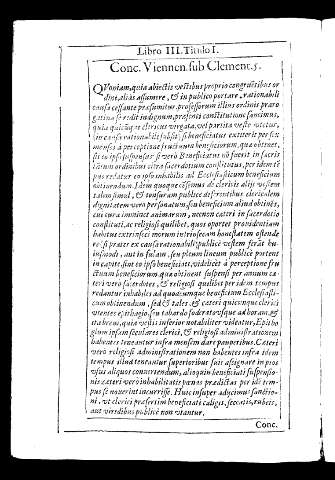 Libro III. Titulo I.
Conc. Viennen. sub Clement. 5.
QVoniam, quia abiectis vestibus proprio congruentibus or
dini, alias assumere, & in publico portare, rationabili
causa cessante præsumitur, professorum illius ordinis præro
gatiua se reddit indignum, præsenti constitutione sancimus,
quia quicunque clericus virgata, vel partita veste vtetur,
nisi causa rationabilis subsit, si beneficiatus extiterit per sex
menses à perceptione fructuum beneficiorum, quæ obtinet,
sit eo ipso suspensus: si verò Beneficiatus nō fuerit in sacris
tamen ordinibus citra sacerdotium constitutus, per idem tē
pus reddatur eo ipso inhabilis ad Ecclesiasticum beneficium
obtinendum. Idem quoque cēsemus de clericis aliis vestem
talem simul, & tonsuram publicè deferentibus clericalem
dignitatem vero personatum, seu beneficium aliud obtinēs,
cui cura imminet animarum, necnon cæteri in sacerdotio
constituti, ac religiosi quilibet, quos oportet prouidentiam
habitus extrinseci morum intrinsecam honestatem ostende
re, si præter ex causa rationabili, publicè vestem ferāt hu-
iusmodi, aut in sulam, seu pileum lineum publicè portent
in capite, sint eo ipso beneficiati, videlicèt à perceptione fru
ctuum beneficiorum quæ obtinent suspensi per annum cæ
teri verò sacerdotes, & religiosi quilibet per idem tempus
reddantur inhabiles ad quodcumque beneficium Ecclesiasti-
cum obtinendum, sed & tales, & cæteri quicunque clerici
vtentes epithogio, seu tabardo foderato vsque ad horam, &
ita breui, quia vestis inferior notabiliter videatur, Epitho
gium ipsum seculares clerici, & religiosi administrationem
habentes teneantur infra mensem dare pauperibus. Cæteri
verò religiosi administrationem non habentes infra idem
tempus illud teneantur superioribus suis assignare in pios
vsus aliquos conuertendum, alioquin beneficiati suspensio-
nis cæteri verò inhabilitatis pœnas prædictas per idē tem-
pus se nouerint incurrisse. Huic insuper adycimus sanctio-
ni, vt clerici præsertim beneficiati caligis, seccatis, rubeis,
aut viridibus publicè non vtantur.
Conc.